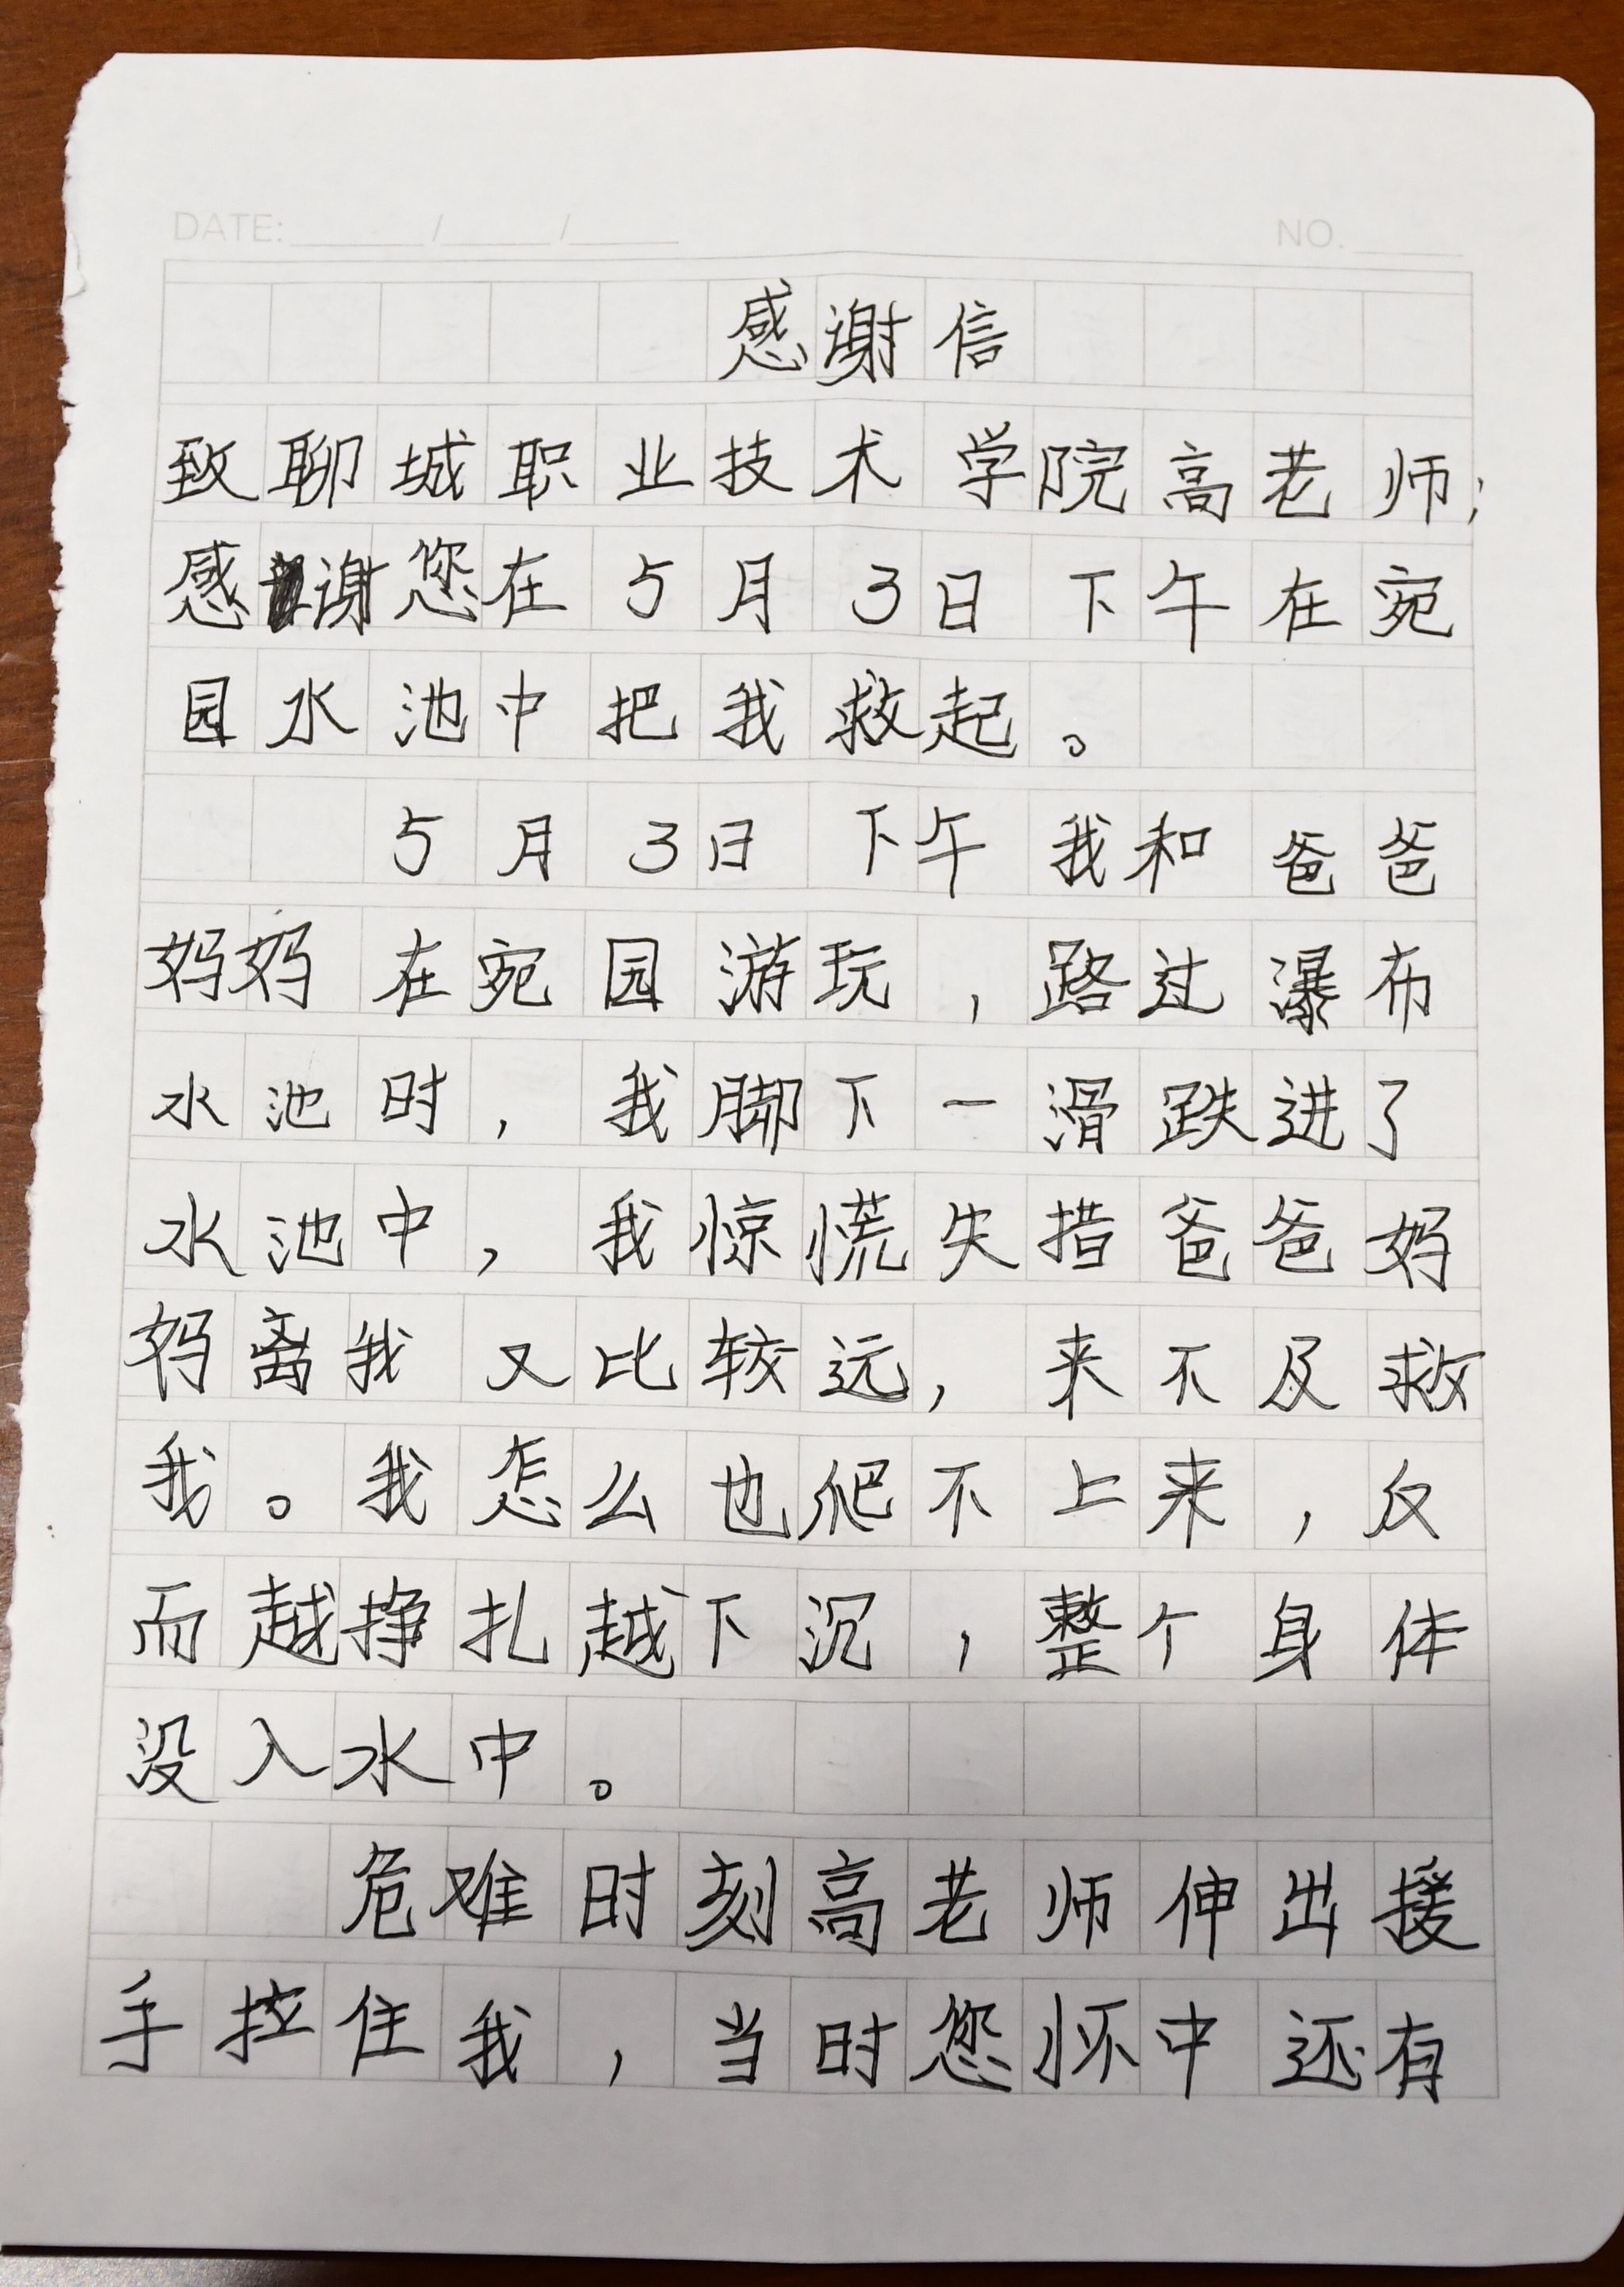 DATE: / /
NO.
感谢信
致聊城职业技术学院高老师:
感谢您在5月3日下午在宛
园水池中把我救起。
5月3日下午我和爸爸
妈妈在宛园游玩,路过瀑布
水池时,我脚下一滑跌进了
水池中,我惊慌失措爸爸妈
妈离我又比较远,来不及救
我。我怎么也爬不上来,反
而越挣扎越下沉,整个身体
没入水中。
危难时刻高老师伸出援
手拉住我,当时您怀中还有